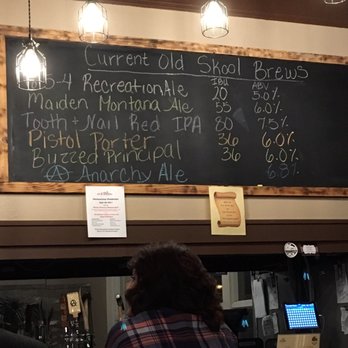 Current Old Skool Brews
IBU ABV
5-4 RecreationAle 20 5.0%
Maiden Montana Ale 55 6.0%
Tooth + Nail Red IPA 80 7.5%
Pistol Porter 36 6.0%
Buzzed Principal 36 6.0%
Anarchy Ale 6.8%